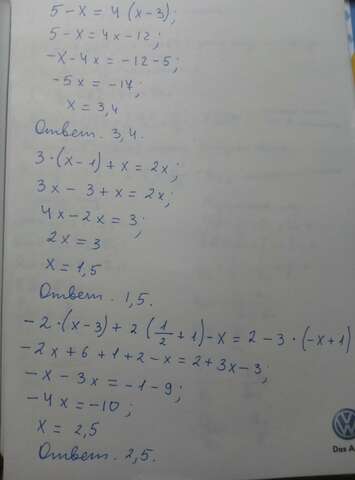 5-x=4(x-3);
5-x=4x-12;
-x-4x=-12-5;
-5x=-17;
x=3,4
Ответ. 3,4.
3·(x-1)+x=2x;
3x-3+x=2x;
4x-2x=3;
2x=3
x=1,5
Ответ. 1,5.
-2·(x-3)+2(1/2+1)-x=2-3·(-x+1)
-2x+6+1+2-x=2+3x-3;
-x-3x=-1-9;
-4x=-10;
x=2,5
Ответ. 2,5.
Das A